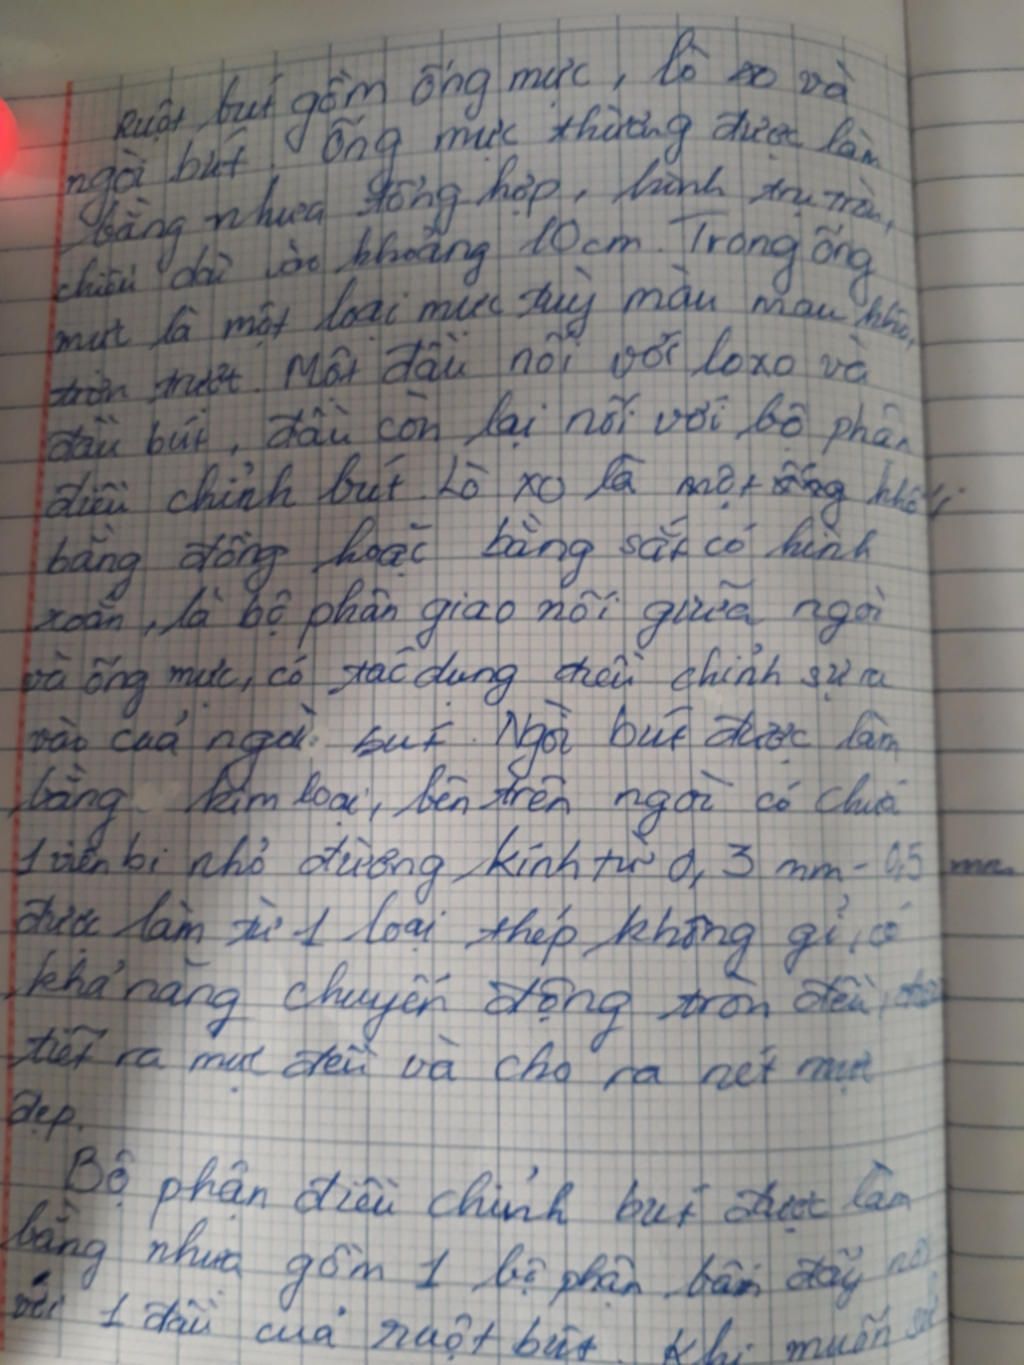 Ruột bút gồm ống mực, lò xo và
ngòi bút. Ống mực thường được làm
bằng nhựa tổng hợp, hình trụ tròn,
chiều dài vào khoảng 10cm. Trong ống
mực là một loại mực tuỳ màu mau khô,
trơn trượt. Một đầu nối với loxo và
đầu bút, đầu còn lại nối với bộ phận
điều chỉnh bút. Lò xo là một ống khối
bằng đồng hoặc bằng sắt có hình
xoắn, là bộ phận giao nối giữa ngòi
và ống mực, có tác dụng điều chỉnh sự ra
vào của ngòi bút. Ngòi bút được làm
bằng kim loại, bên trên ngòi có chứa
1 viên bi nhỏ đường kính từ 0,3 mm - 0,5 mm
được làm từ 1 loại thép không gỉ, có
khả năng chuyển động tròn đều,
tiết ra mực đều và cho ra nét mực
đẹp.
Bộ phận điều chỉnh bút được làm
bằng nhựa gồm 1 bộ phận bấm đẩy nối
với 1 đầu của ruột bút. Khi muốn